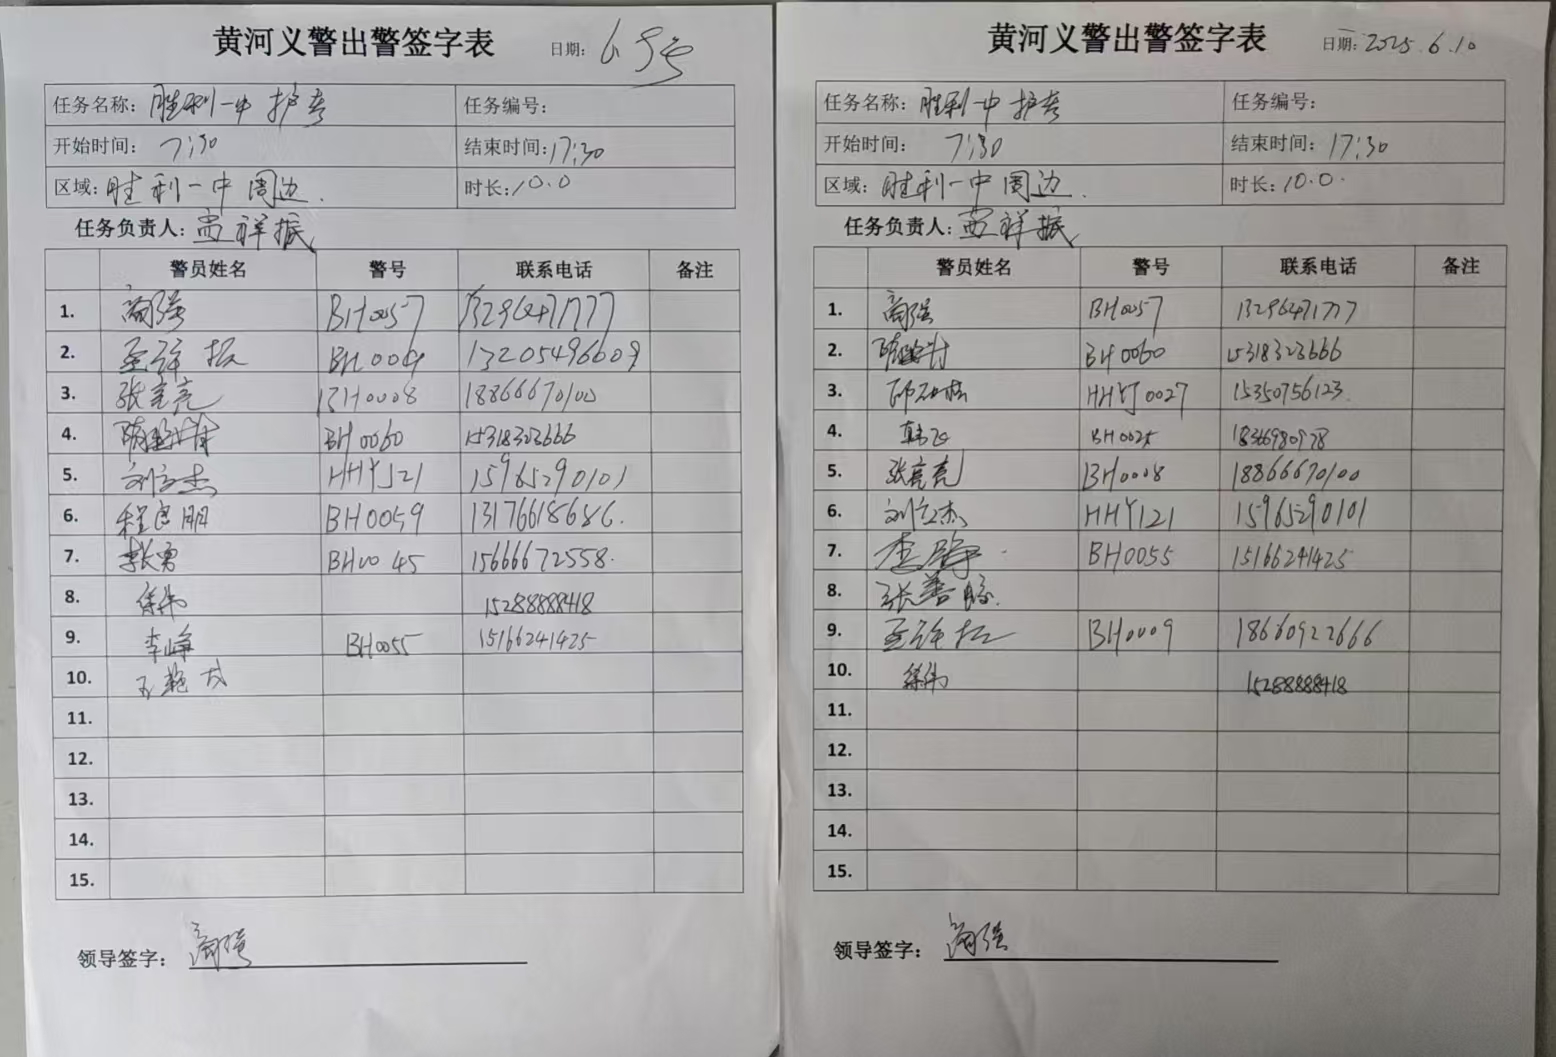 黄河义警出警签字表 日期: 6.9号
任务名称: 胜利一中 护考 任务编号:
开始时间: 7:30 结束时间: 17:30
区域: 胜利一中 周边. 时长: 10.0
任务负责人: 祥振
警员姓名 警号 联系电话 备注
1. 商强 BH0057 13296471777
2. 祥振 BH0009 13205496609
3. 张亮亮 BH0008 18866670100
4. BH0060 15318323666
5. 刘立杰 HHYJ21 15965290101
6. 程良朋 BH0059 13176618686.
7. 李长勇 BH0045 15666672558.
8. 徐伟 15288888418
9. 李峰 BH0055 15166241425
10. 王艳
11.
12.
13.
14.
15.
领导签字: 商强
黄河义警出警签字表 日期: 2025.6.10
任务名称: 胜利一中 护考 任务编号:
开始时间: 7:30 结束时间: 17:30
区域: 胜利一中 周边. 时长: 10.0.
任务负责人: 祥振
警员姓名 警号 联系电话 备注
1. 商强 BH0057 13296471777
2. BH0060 15318323666
3. HHYJ0027 15350756123.
4. 韩飞 BH0025 18366980978
5. 张亮亮 BH0008 18866670100
6. 刘立杰 HHY121 15965290101
7. 李峰 BH0055 15166241425
8. 张善
9. BH0009 18660922666
10. 徐伟 15288888418
11.
12.
13.
14.
15.
领导签字: 商强